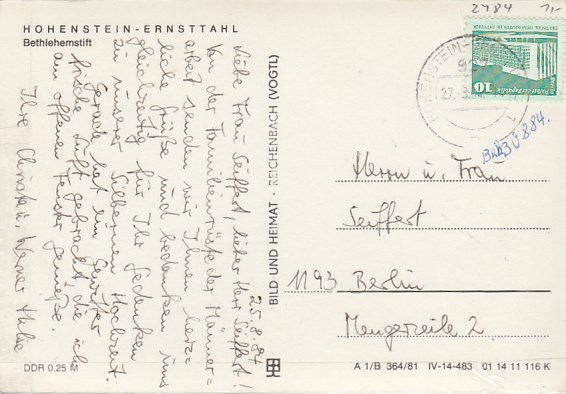 HOHENSTEIN-ERNSTTHAL
Bethlehemstift
25.8.84
Liebe Frau Seiffert, lieber Herr Seiffert!
Von der Familienrüste der Männer=
arbeit senden wir Ihnen herz=
liche Grüße und bedanken uns
gleichzeitig für Ihr Gedenken
zu unserer Silbernen Hochzeit.
Gerade hat ein Gewitter
frische Luft gebracht, die ich
am offenen Fenster genieße.
Ihre Christa u. Werner
DDR 0,25 M
BILD UND HEIMAT · REICHENBACH (VOGTL)
2784
10
27.8.84
30884.
Herrn u. Frau
Seiffert
1193 Berlin
Mengerzeile 2
A 1/B 364/81 IV-14-483 01 14 11 116 K